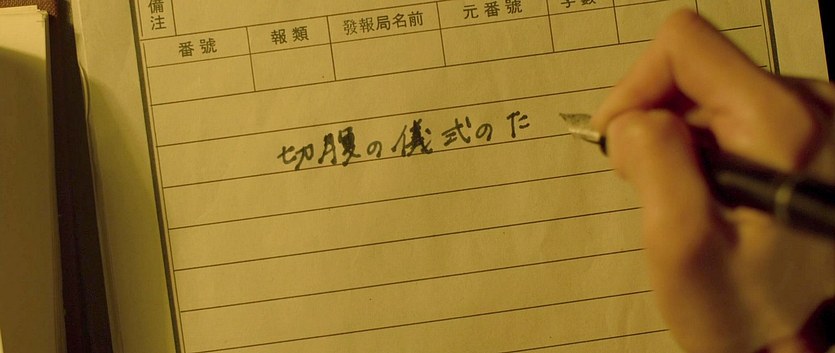 備注
番號 報類 發報局名前 元番號 字數
切腹の儀式のた